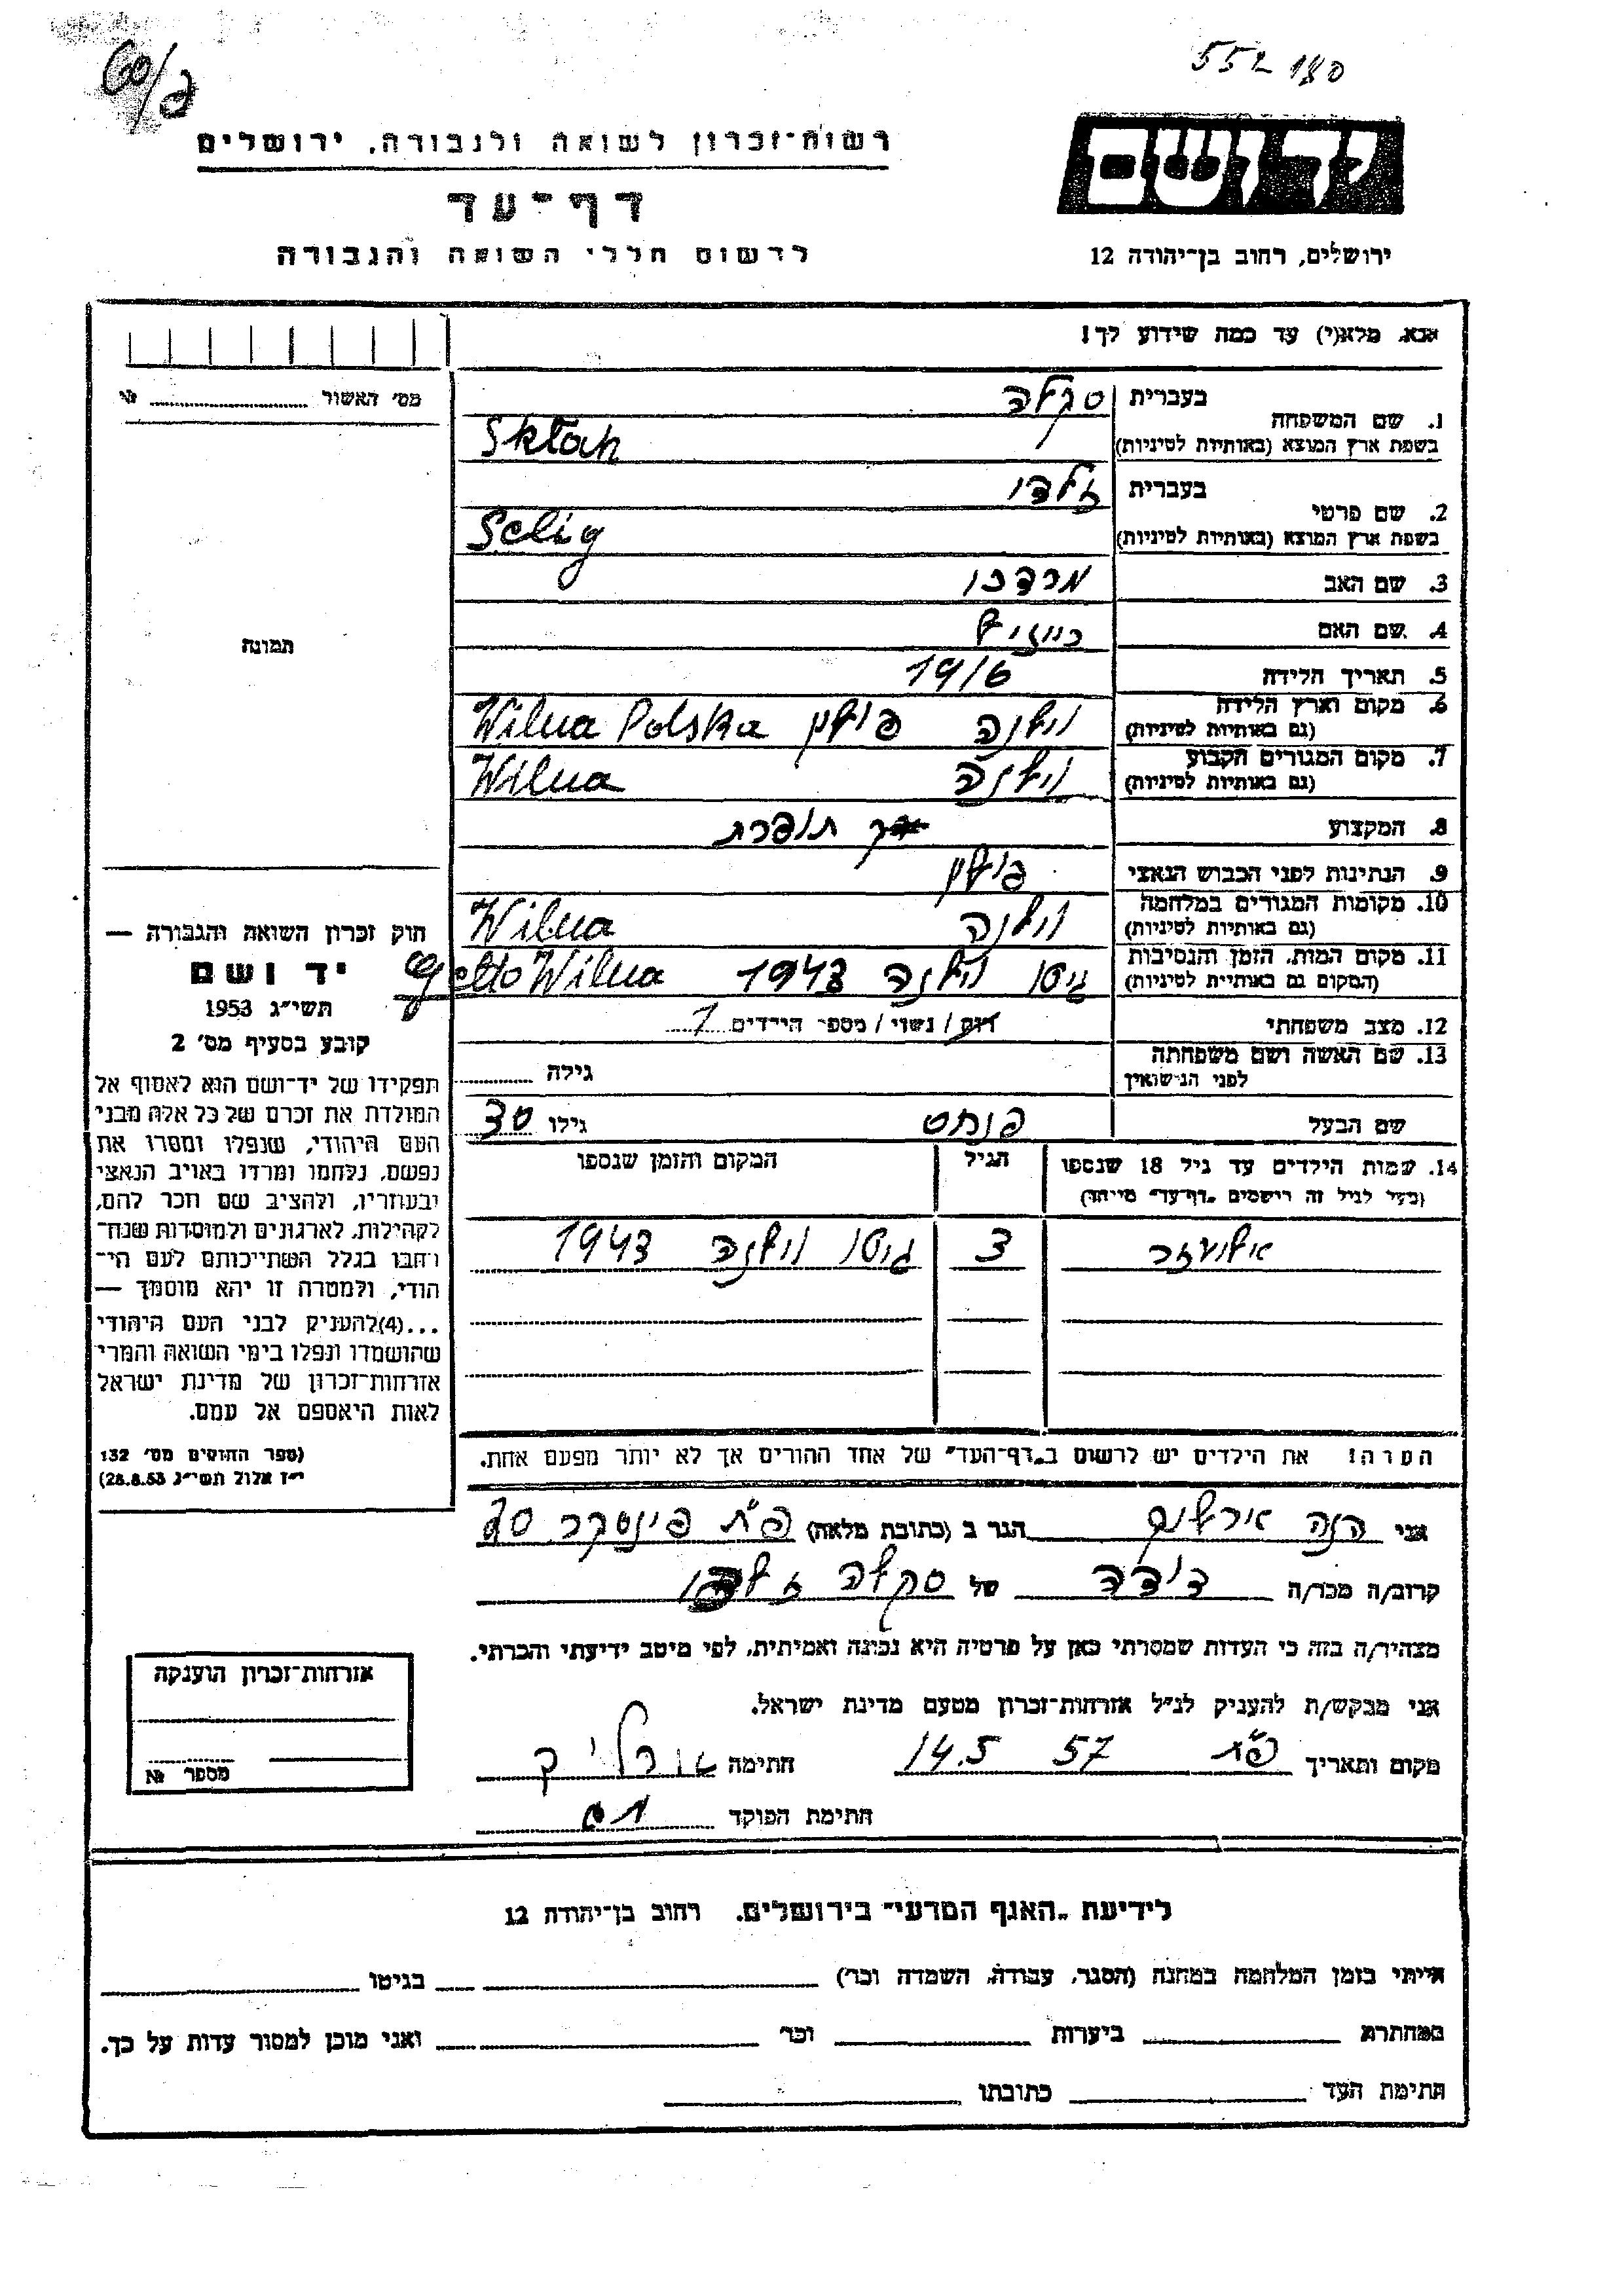 60/ב
552 180
רשות־זכרון לשואה ולגבורה, ירושלים
יד ושם
דף־עד
לרשום חללי השואה והגבורה
ירושלים, רחוב בן־יהודה 12
אנא, מלא(י) עד כמה שידוע לך!
מס' האשור №
1. שם המשפחה
בעברית סקלה
בשפת ארץ המוצא (באותיות לטיניות) Skłah
2. שם פרטי
בעברית זלדה
בשפת ארץ המוצא (באותיות לטיניות) Selig
3. שם האב מרדכי
4. שם האם
5. תאריך הלידה 1916
6. מקום וארץ הלידה
(גם באותיות לטיניות) וילנה פולין Wilna Polska
7. מקום המגורים הקבוע
(גם באותיות לטיניות) וילנה Wilna
8. המקצוע תופרת
9. הנתינות לפני הכבוש הנאצי פולין
10. מקומות המגורים במלחמה
(גם באותיות לטיניות) וילנה Wilna
11. מקום המות, הזמן והנסיבות
(המקום גם באותיות לטיניות) גיטו וילנה 1943 Getto Wilna
12. מצב משפחתי רווק / נשוי / מספר הילדים 1
13. שם האשה ושם משפחתה
לפני הנישואין גילה
שם הבעל פנחס גילו 30
14. שמות הילדים עד גיל 18 שנספו הגיל המקום והזמן שנספו
(מעל לגיל זה רושמים "דף־עד" מיוחד)
אליעזר 3 גיטו וילנה 1943
תמונה
חוק זכרון השואה והגבורה —
יד ושם
תשי"ג 1953
קובע בסעיף מס' 2
תפקידו של יד־ושם הוא לאסוף אל
המולדת את זכרם של כל אלה מבני
העם היהודי, שנפלו ומסרו את
נפשם, נלחמו ומרדו באויב הנאצי
ובעוזריו, ולהציב שם וזכר להם,
לקהילות, לארגונים ולמוסדות שנח־
רבו בגלל השתייכותם לעם הי־
הודי, ולמטרה זו יהא מוסמך —
...(4)להעניק לבני העם היהודי
שהושמדו ונפלו בימי השואה והמרי
אזרחות־זכרון של מדינת ישראל
לאות היאספם אל עמם.
(ספר החוקים מס' 132
י"ז אלול תשי"ג 28.8.53)
הערה! את הילדים יש לרשום ב"דף־העד" של אחד ההורים אך לא יותר מפעם אחת.
אני הגר ב (כתובת מלאה) פ"ת פינסקר 20
קרוב/ה מכר/ה דודה של סקלה זלדה
מצהיר/ה בזה כי העדות שמסרתי כאן על פרטיה היא נכונה ואמיתית, לפי מיטב ידיעתי והכרתי.
אני מבקש/ת להעניק לנ"ל אזרחות־זכרון מטעם מדינת ישראל.
מקום ותאריך פ"ת 14.5 57 חתימה
חתימת הפוקד
אזרחות־זכרון הוענקה
מספר №
לידיעת "האגף המדעי" בירושלים, רחוב בן־יהודה 12
הייתי בזמן המלחמה במחנה (הסגר, עבודה, השמדה וכו') בגיטו
במחתרת ביערות וכו' ואני מוכן למסור עדות על כך.
חתימת העד כתובתו